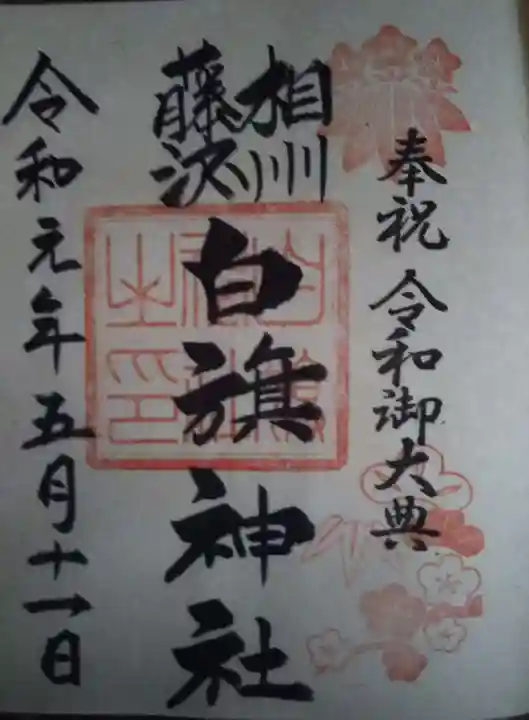 奉祝 令和御大典
相州
藤沢
白旗神社
白旗神社之印
令和元年五月十一日